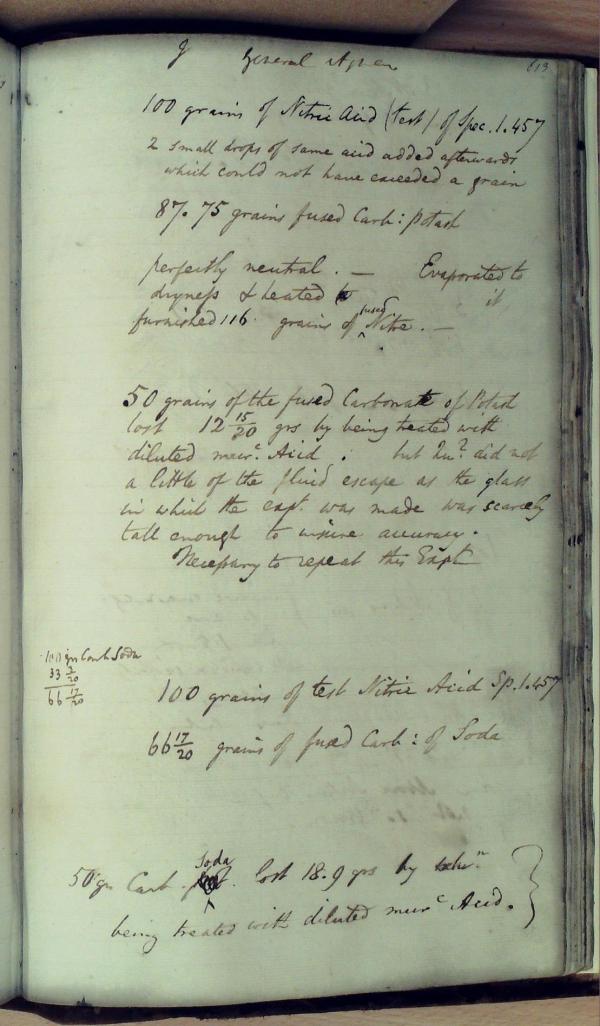 General
100 grains of Nitric Acid (test) of Spec. 1.457
2 small drops of same acid added afterwards
which could not have exceeded a grain
87.75 grains fused Carb: potash
perfectly neutral. — Evaporated to
dryness & heated it
furnished 116 grains of fused Nitre. —
50 grains of the fused Carbonate of Potash
lost 12 15/20 grs by being treated with
diluted murc Acid. but Qu? did not
a little of the fluid escape as the glass
in which the expt. was made was scarcely
tall enough to insure accuracy.
Necessary to repeat this Expt
100 grs Carb Soda
33 3/20
66 17/20
100 grains of test Nitric Acid Sp. 1.457
66 17/20 grains of fused Carb: of Soda
50 grs Carb. Soda lost 18.9 grs by
being treated with diluted murc Acid.